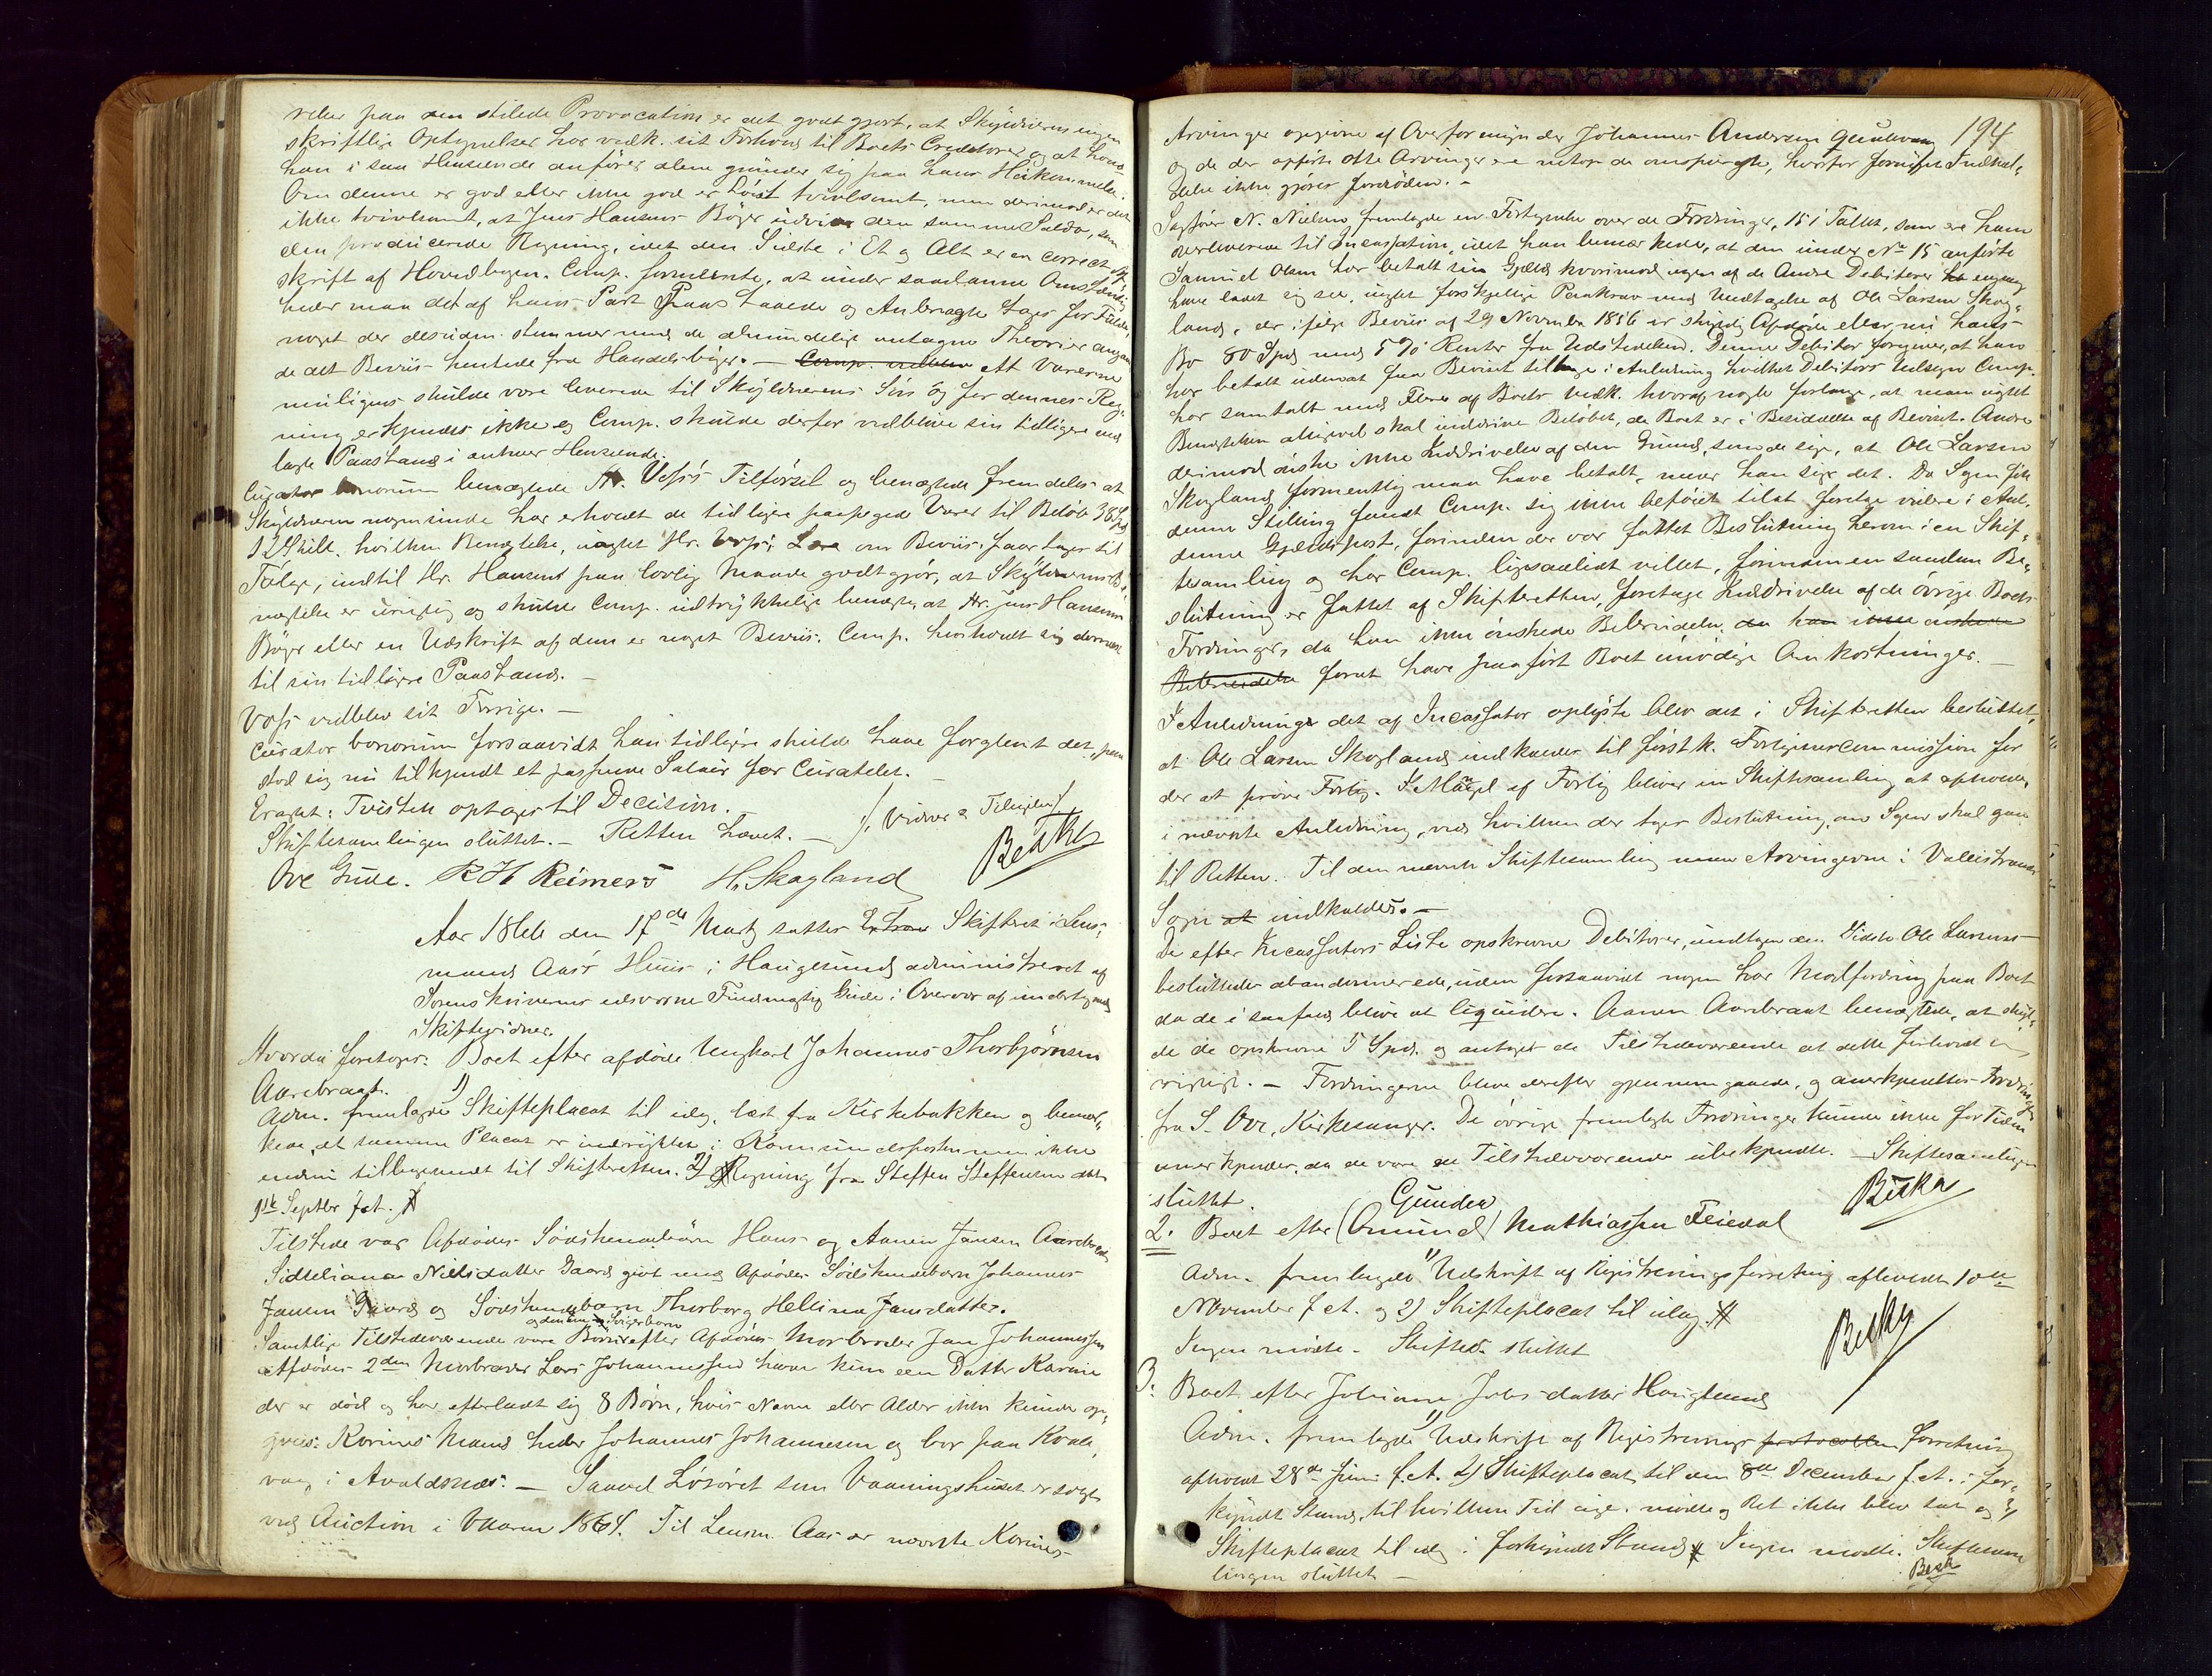 relse paa den stilede Provocation er det godtgjort, at Skyldneren ingen
skriftlig Optegnelser har vedk. sit Forhold til Boets Creditorer og at hvad
han i saa Henseende anfører alene grunder sig paa hans Hukommelse.
Om denne er god eller ikke god er høist tvivlsomt, men derimod er det
ikke tvivlsomt, at Jens Hansens Bøger udvise den samme Saldo, som
den producerede Regning, idet den Sidste i Et og Alt er en correct Af¬
skrift af Hovedbogen. Comp. formeente, at under saadanne Omstændig
heder maa det af hans Part Paastaaede og Anbragte tages for Fulde,
noget der desuden stemmer med de almindelige antagne Theorier angaaen
de det Beviis hentede fra Handelsbøger. Comp. At Varerne
muligens skulde være leverede til Skyldnerens Søn og for dennes Reg¬
ning erkjendes ikke og Comp. skulde derfor vedblive sin tidligere ned
lagte Paastand i enhver Henseende.
Curator bonorum benægtede Hr. Voss's Tilførsel og benægtede fremdeles at
Skyldneren nogensinde har erholdt de tidligere paapegede Varer til Beløb 38 Spd
12 Skill. hvilken Benægtelse, uagtet Hr. Voss's Lære om Beviis, faar tages til
Følge, indtil Hr. Hansens paa lovlig Maade godtgjør, at Skyldnerens Be¬
nægtelse er urigtig og skulde Comp. udtrykkelige benægte, at Hr. Jens Hansens
Bøger eller en Udskrift af dem er noget Beviis. Comp. henholdt sig dermed
til sin tidligere Paastand. —
Voss vedblev sit Forrige. —
Curator bonorum forsaavidt han tidligere skulde have forglemt det, paa
stod sig nu tilkjendt et passende Salair for Curatelet. —
Eragtet: Tvisten optages til Decision.
Skiftesamlingen sluttet. — Retten hævet. —
Ove Gude. R H Reimers H. Skogland
Aar 1866 den 17de Marts sattes Extra Skifteret i Lens¬
mand Aas's Huus i Haugesund administreret af
Sorenskriverens edsvorne Fuldmægtig Gude i Overvær af undertegnede
Skiftevidner.
Hvorda foretoges: Boet efter afdøde Ungkarl Johannes Thorbjørnsen
Aarebraat.
Adm. fremlagde 1) Skifteplacat til idag, læst fra Kirkebakken og bemær¬
kede, at samme Placat er indrykket i Karmsundsposten men ikke
endnu tilbagesendt til Skifteretten. 2) Regning fra Steffen Steffensen dat.
9de Septbr f. A.
Tilstede var Afdødes Sødskendebørn Hans og Aanen Jansen Aarebraat
Sidteliana Nielsdatter Gaard givt med Afdødes Sødskendebarn Johannes
Jansen Gaard og Sødskendebarn Thorborg Hellina Jansdatter.
Samtlige Tilstedeværende vare Børn efter Afdødes Morbroder Jan Johannessen
Afdødes 2den Morbroder Lars Johannessen have kun een Datter Karine
der er død og har efterladt sig 8 Børn, hvis Navne eller Alder ikke kunde op¬
gives. Karines Mand heder Johannes Johannesen og bor paa Kvale
vaag i Avaldsnæs. — Saavel Løsøret som Vaaningshuset er solgt
ved Auction i Vaaren 1864. Til Lensm. Aas er nævnte Karines
194
Arvinger opgivne af Overformynder Johannes Andersen
og de der opførte otte Arvinger ere netop de omspurgte, hvorfor fornyet Indkal¬
delse ikke gjøres fornøden. —
Sagfører N. Nielsen fremlagde en Fortegnelse over de Fordringer, 15 i Tallet, som ere ham
overleverede til Incassation, idet han bemærkede, at den under No 15 anførte
Samuel Olsen har betalt sin Gjæld, hvorimod ingen af de Andre Debitorer engang
have ladet sig see, uagtet forskjellige Paakrav med Undtagelse af Ole Larsen Skog¬
land, der ifølge Beviis af 29 November 1856 er skyldig Afdøde eller nu hans
Bo 80 Spd med 5% Renter fra Udstedelsen. Denne Debitor foregiver, at han
har betalt uden at faa Beviset tilbage i Anledning hvilket Debitors Udsagn Comp.
har samtalt med Flere af Boets vedk. hvoraf nogle forlange, at man uagtet
Benægtelsen alligevel skal inddrive Beløbet, da Boet er i Besiddelse af Beviset. Andre
derimod ønske ikke Inddrivelse af den Grund, som de sige, at Ole Larsen
Skogland formentlig maa have betalt, naar han siger det. Da Sagen fik
denne Stilling fandt Comp. sig ikke beføiet til at foretage videre i Anl.
denne Gjældspost, forinden der var fattet Beslutning herom i en Skif¬
tesamling og har Comp. ligesaalidt villet, forinden en saadan Be¬
slutning er fattet af Skifteretten, foretage Inddrivelse af de øvrige Boets
Fordringer, da han ikke ønskede Bebreidelse, da han ikke ønskede
Bebreidelse foruat have paaført Boet unødige Omkostninger. —
I Anledning det af Incassator oplyste blev det i Skifteretten besluttet,
at Ole Larsen Skogland indkaldes til førstk. Forligelsescommission for
der at prøve Forlig. I Mangel af Forlig bliver en Skiftesamling at afholde,
i nævnte Anledning, ved hvilken der tages Beslutning, om Sagen skal gaae
til Retten. Til den nævnte Skiftesamling maa Arvingerne i Vallestrands
Sogn at indkaldes. —
De efter Incassators Liste opskrevne Debitorer, undtagen den Sidste Ole Larsens
besluttedes abandonnerede, uden forsaavidt nogen har Modfordring paa Boet
da de i saafald blive at liquidere. Aanen Aarebraat benægtede, at skyl¬
de de opskrevne 5 Spd. og antoges de Tilstedeværende at dette forhold er
rigtigt. — Fordringerne bleve derefter gjennemgaaede, og anerkjendtes Fordringen
fra S. Ove, Kirkesanger. De øvrige fremlagte Fordringer kunde ikke for Tiden
anerkjendes, da de vare de Tilstedeværende ubekjendte. — Skiftesamlingen
sluttet.
Gunder
2. Boet efter (Omund) Mathiassen Feiedal
Adm. fremlagde 1) Udskrift af Registreringsforretning afholdt 10de
November f. A. og 2) Skifteplacat til idag.
Ingen mødte. Skiftet sluttet
3. Boet efter Johanne Jobsdatter Haugesund
Adm. fremlagde 1) Udskrift af Registrerings protocollen forretning
afholdt 28de Juni f. A. 2) Skifteplacat til den 8de December f. A. i for¬
kyndt Stand, til hvilken Tid Ret ikke blev sat og 3)
Skifteplacat til idag i forkyndt Stand. Ingen mødte. Skiftesam
lingen sluttet —